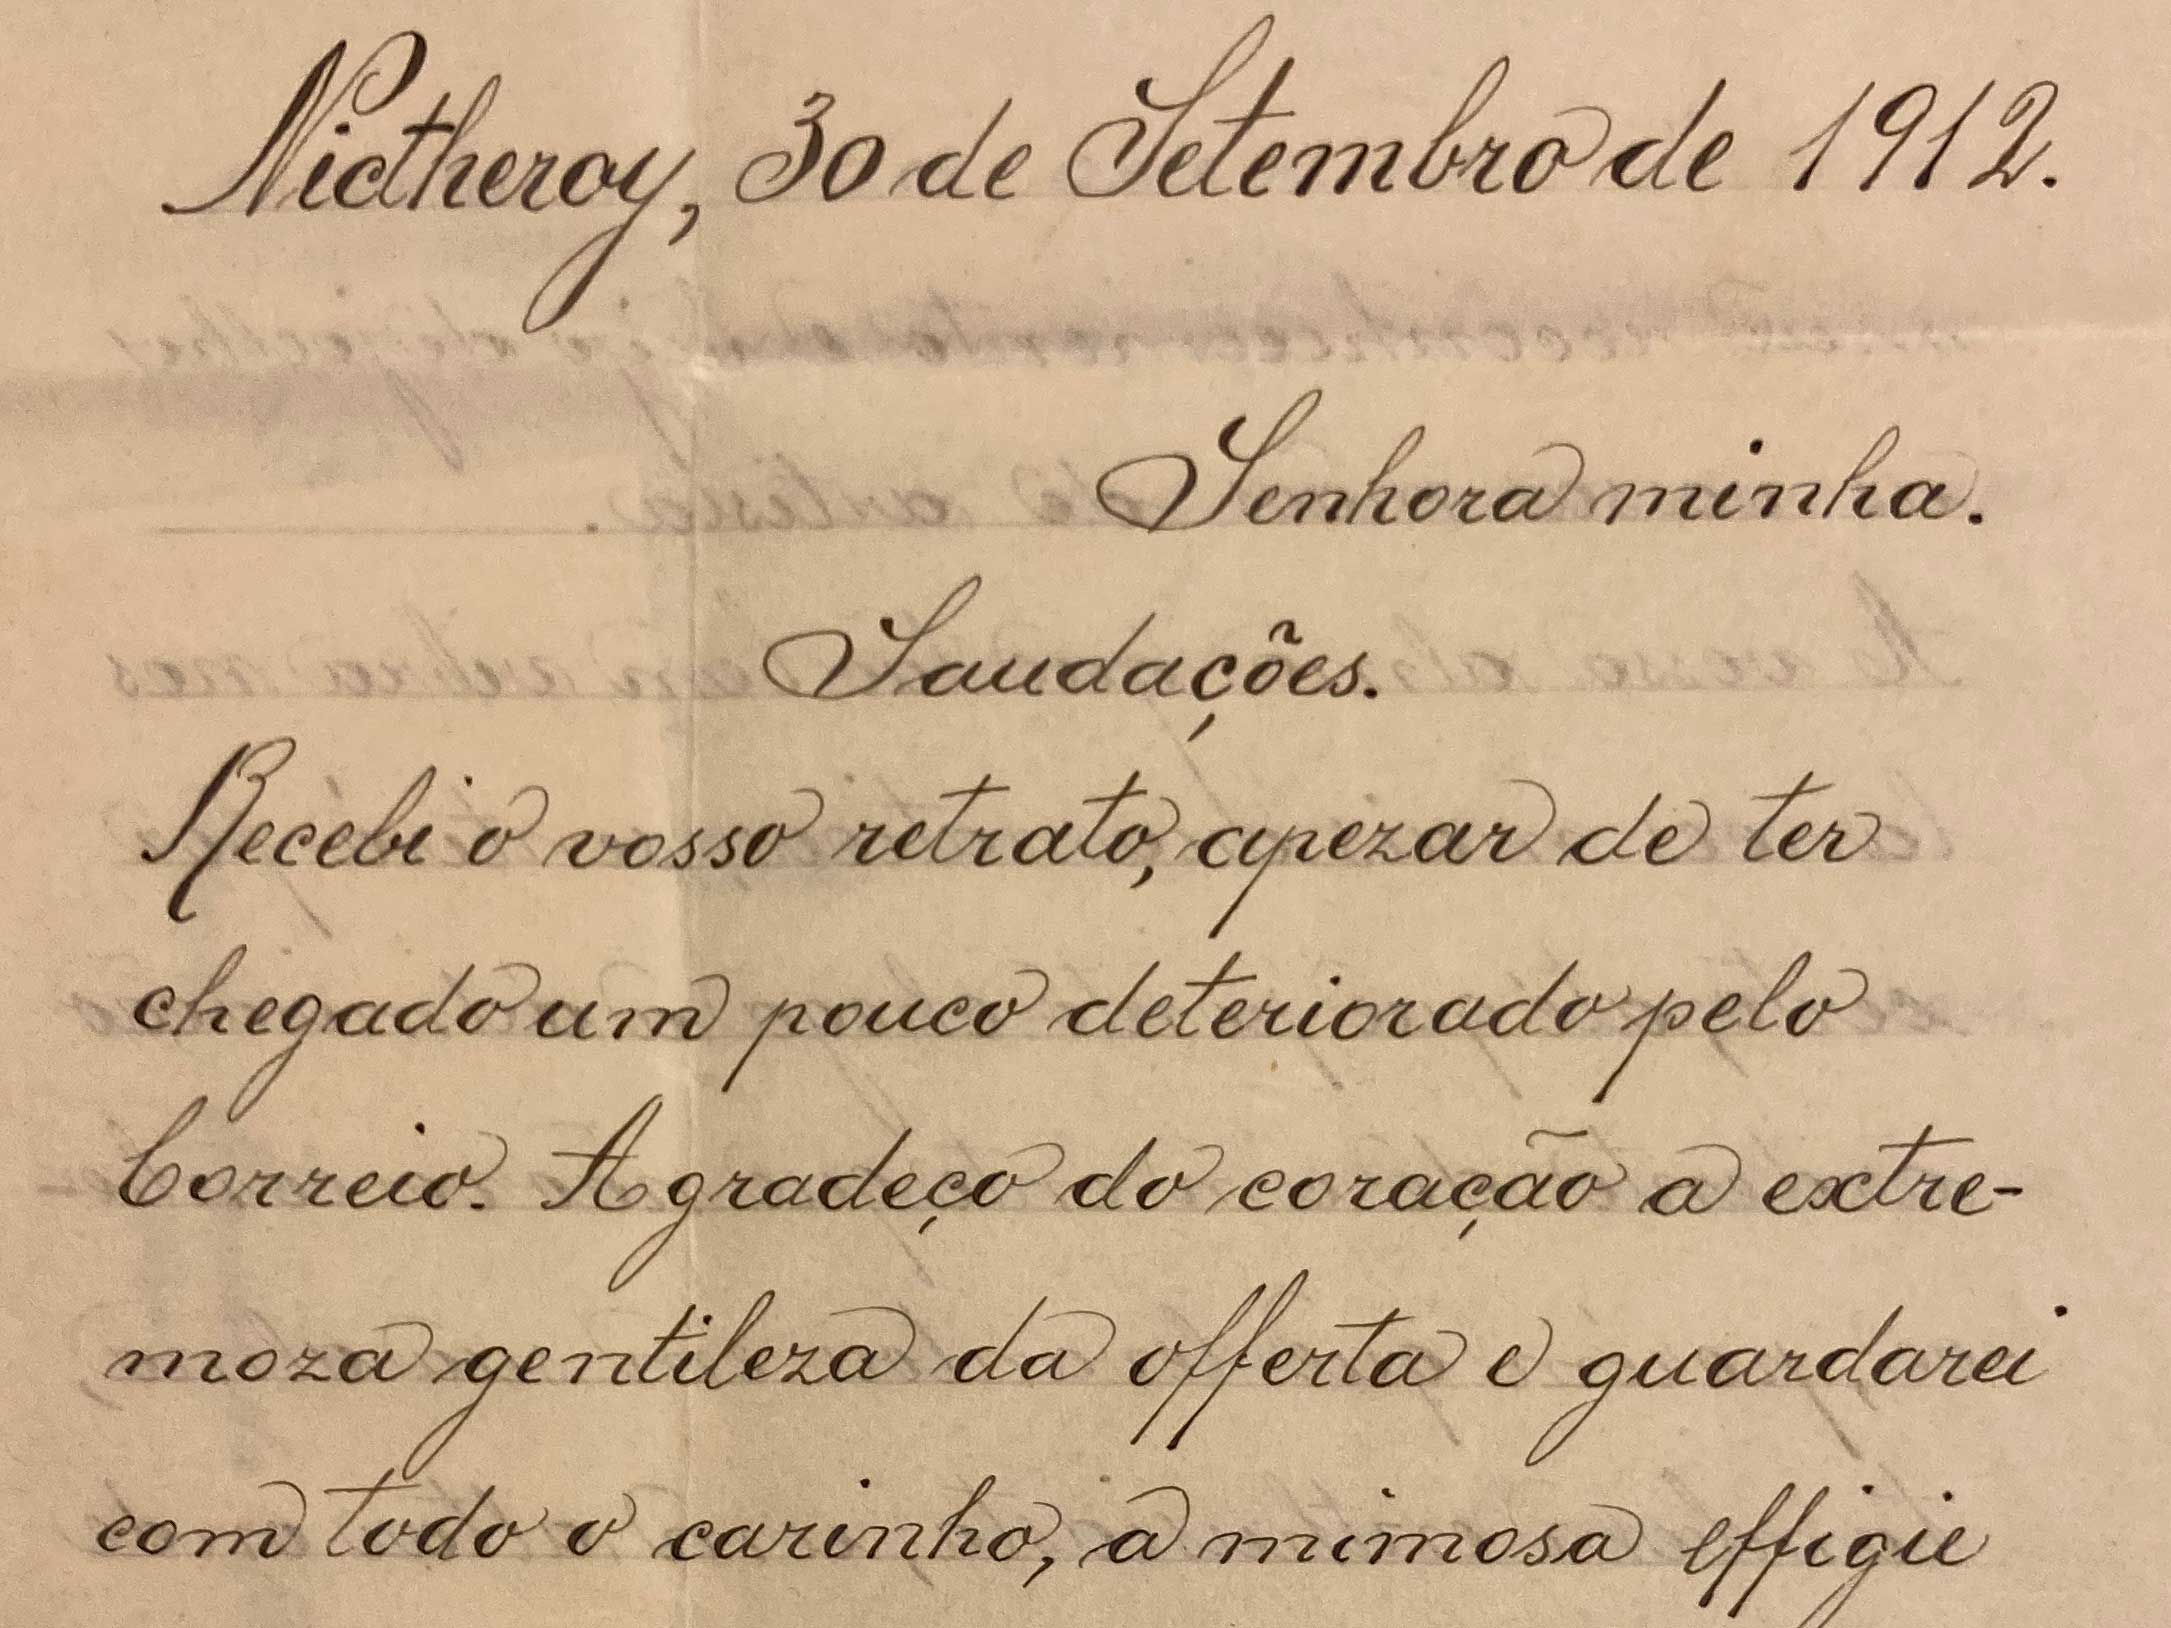 Nictheroy, 30 de Setembro de 1912.
Senhora minha.
Saudações.
Recebi o vosso retrato, apezar de ter
chegado um pouco deteriorado pelo
Correio. Agradeço do coração a extre-
moza gentileza da offerta e guardarei
com todo o carinho, a mimosa effigie